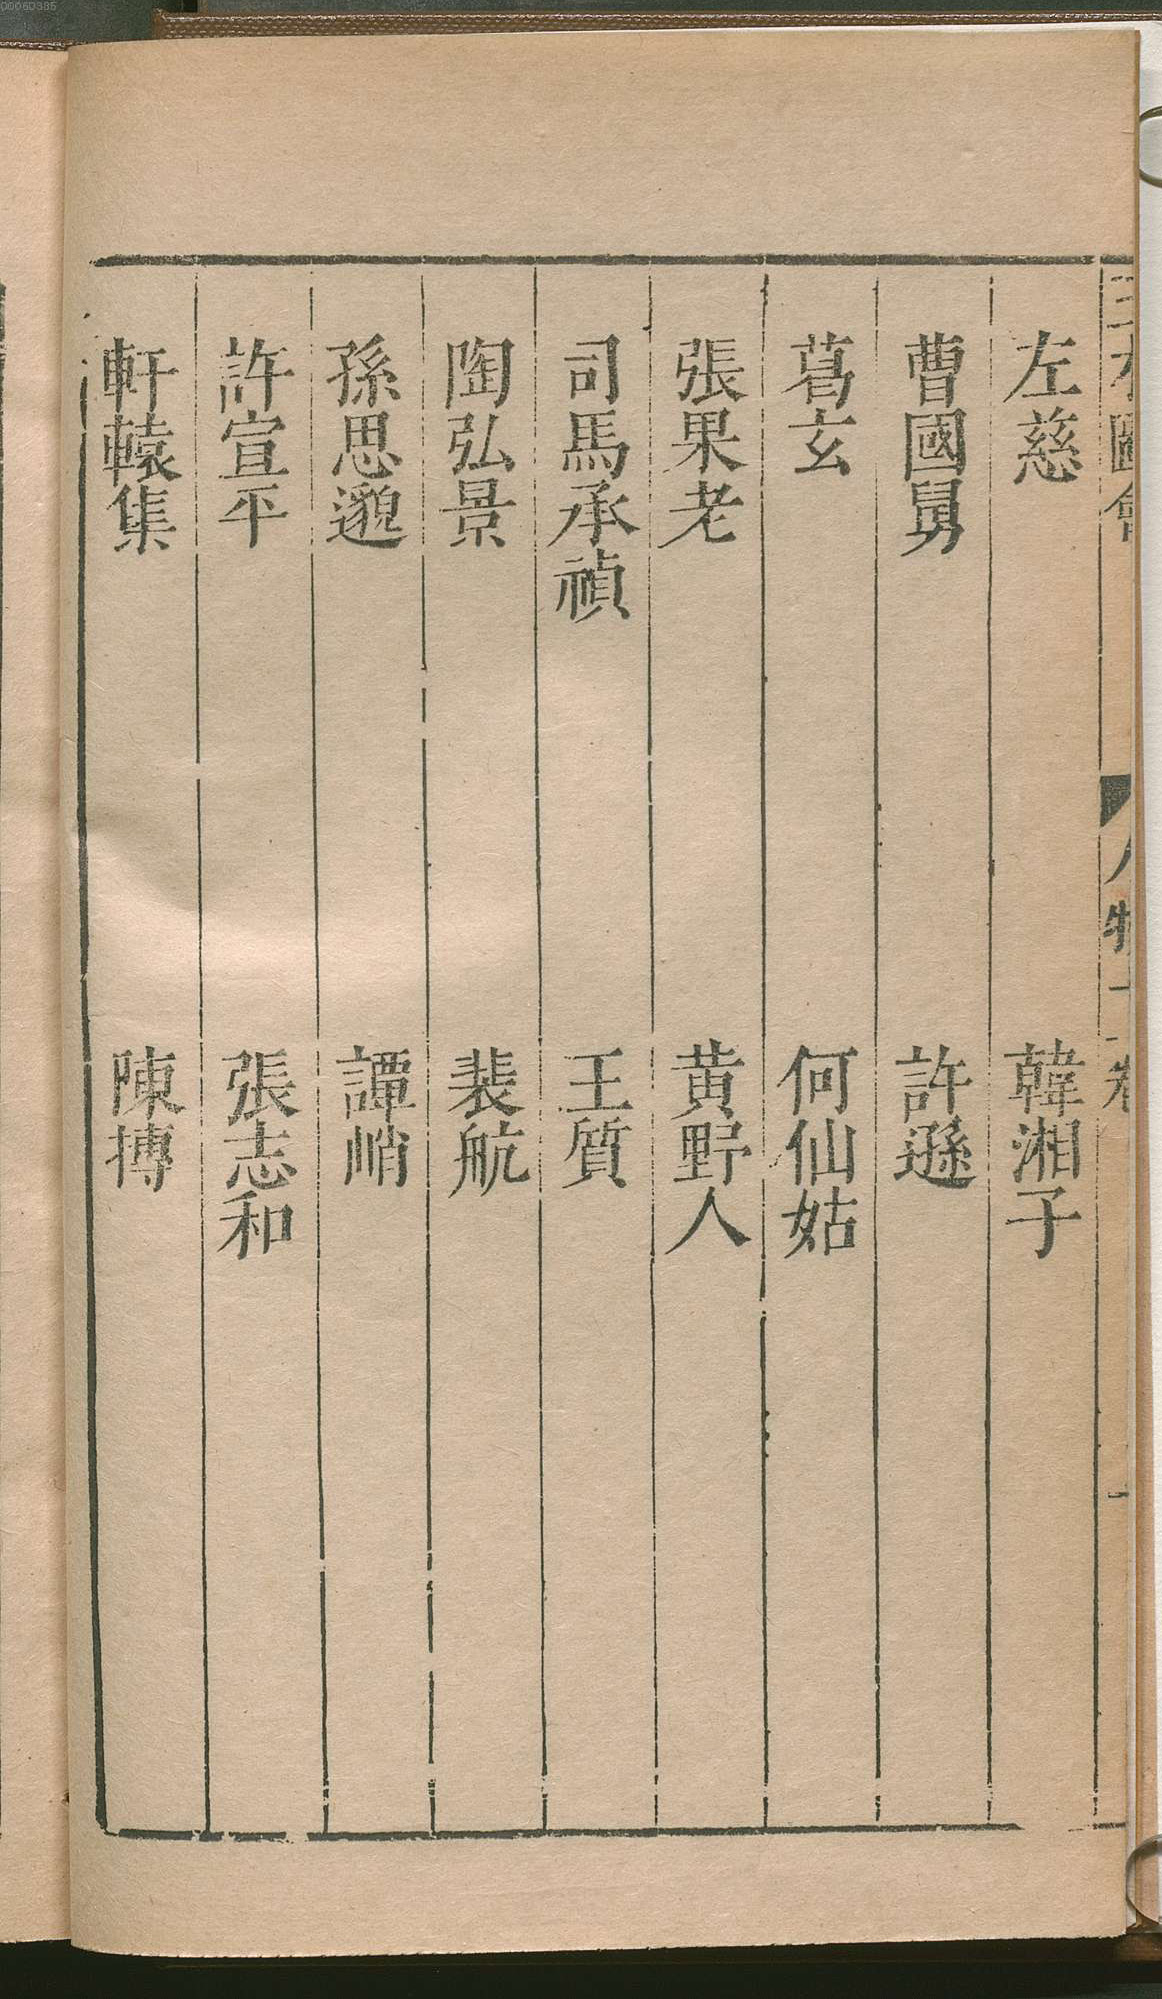 左慈 韓湘子
曹國舅 許遜
葛玄 何仙姑
張果老 黄野人
司馬承禎 王質
陶弘景 裴航
孫思邈 譚峭
許宣平 張志和
軒轅集 陳摶
00060385